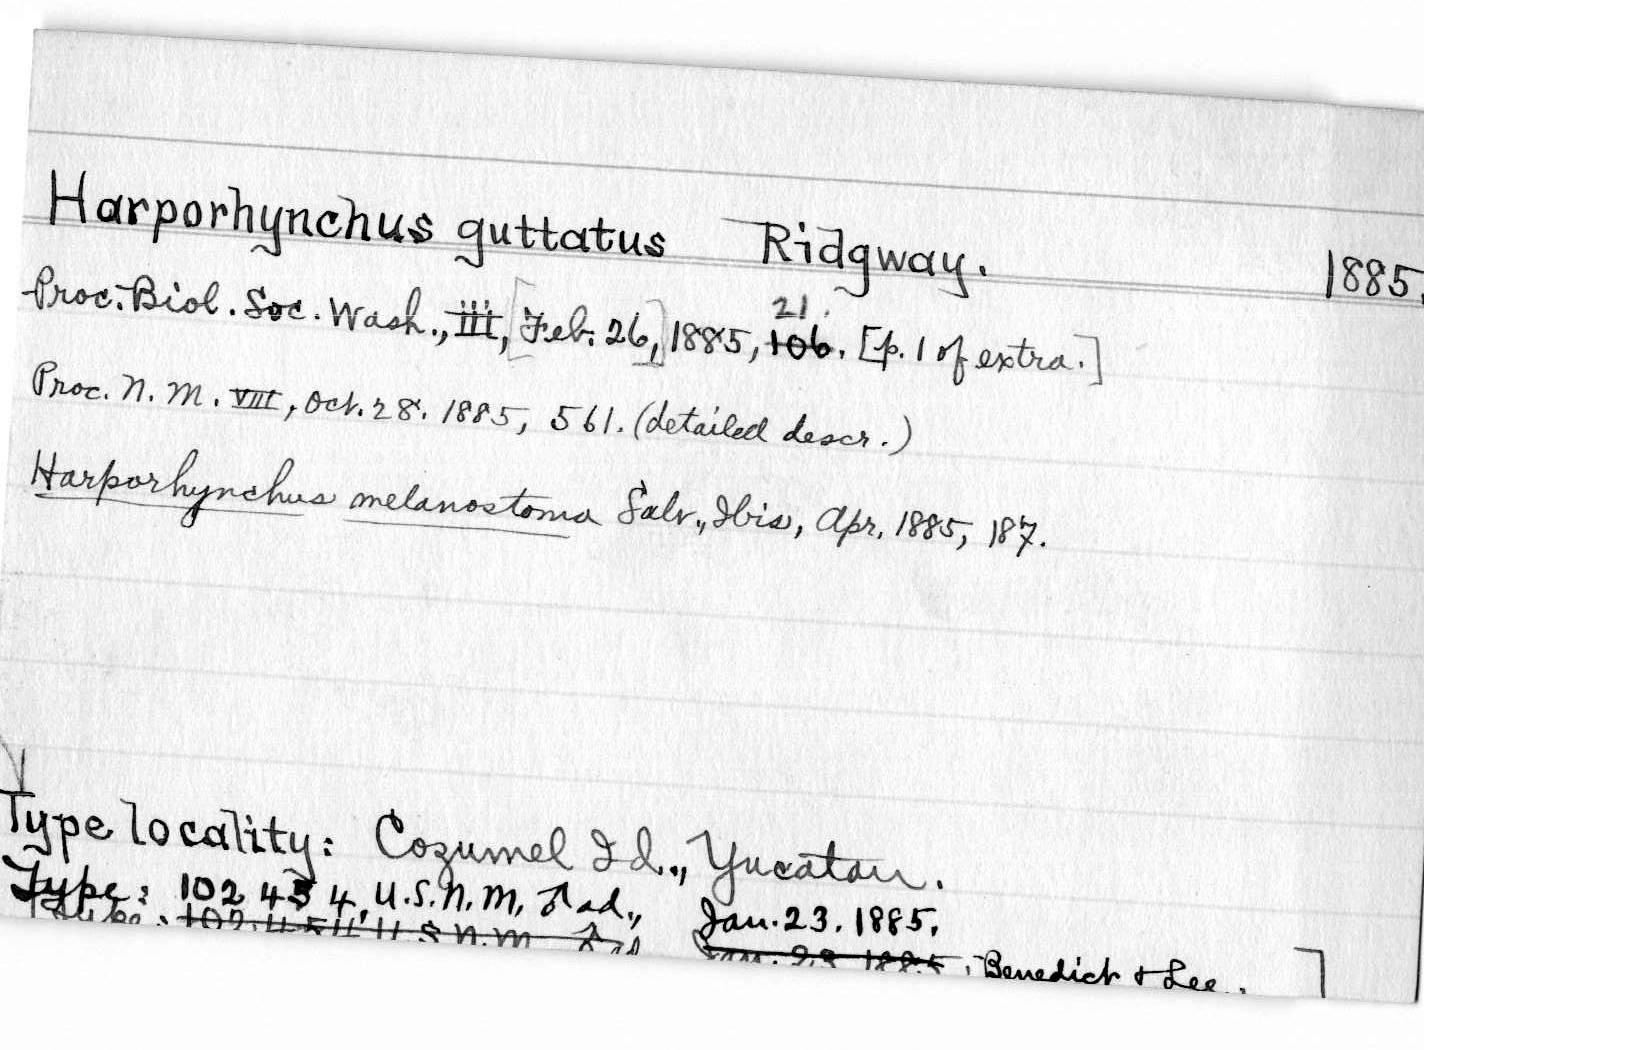 Harporhynchus guttatus Ridgway. 1885.
Proc. Biol. Soc. Wash., III, [Feb. 26,] 1885, 106. 21. [p. 1 of extra.]
Proc. N. M. VIII, Oct. 28. 1885, 561. (detailed descr.)
Harporhynchus melanostoma Salv., Ibis, Apr. 1885, 187.
Type locality: Cozumel Id., Yucatan.
Type: 102454, U.S.N.M. ♂ ad., Jan. 23. 1885.
102454 U.S.N.M. ♂ ad Jan. 23 1885, Benedict & Lee. ]